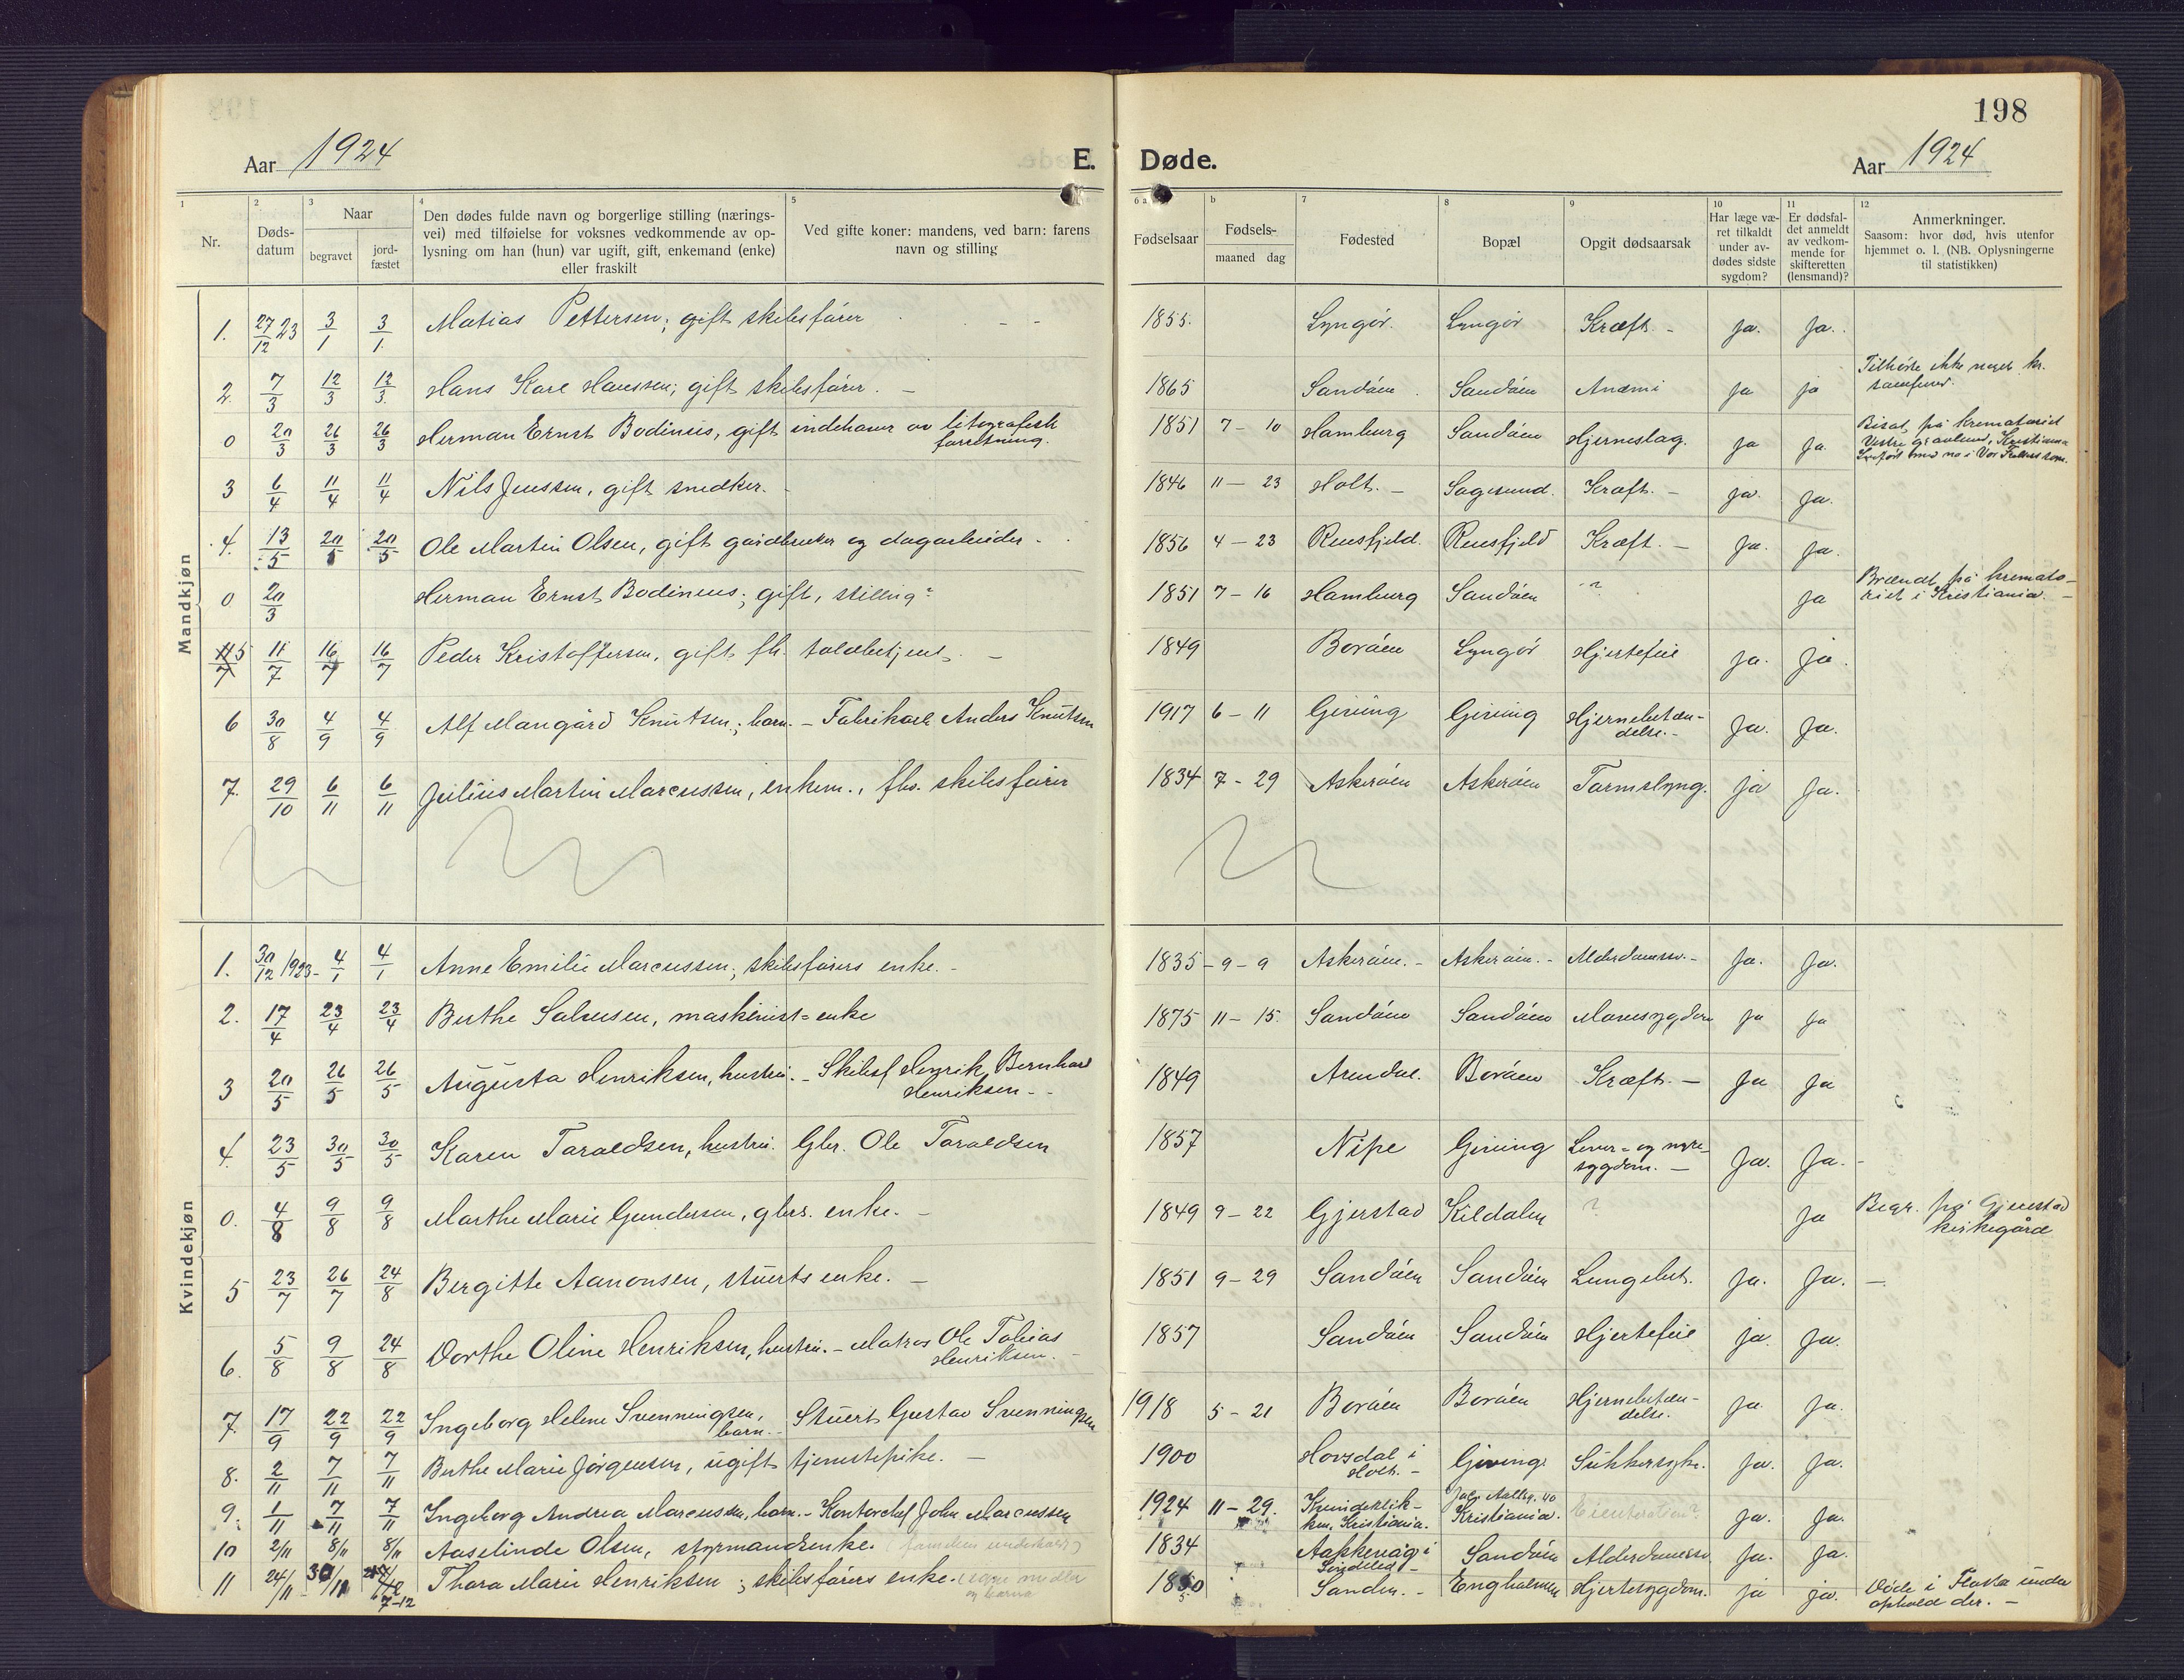 198
Aar 1924
E. Døde.
Aar 1924
1 2 3 4 5 6 a b 7 8 9 10 11 12
Nr.
Døds-
datum
Naar
begravet
jord-
fæstet
Den dødes fulde navn og borgerlige stilling (nærings-
vei) med tilføielse for voksnes vedkommende av op-
lysning om han (hun) var ugift, gift, enkemand (enke)
eller fraskilt
Ved gifte koner: mandens, ved barn: farens
navn og stilling
Fødselsaar
Fødsels-
maaned dag
Fødested
Bopæl
Opgit dødsaarsak
Har læge væ-
ret tilkaldt
under av-
dødes sidste
sygdom?
Er dødsfal-
det anmeldt
av vedkom-
mende for
skifteretten
(lensmand)?
Anmerkninger.
Saasom: hvor død, hvis utenfor
hjemmet o. l. (NB. Oplysningerne
til statistikken)
Mandkjøn
1. 27/12 23 3/1 3/1 Matias Pettersen; gift skibsfører - - 1855. Lyngør. Lyngør Kræft. - ja. Ja.
2. 7/3 12/3 12/3 Hans Kare Hanssen; gift skibsfører. - 1865 Sandøen. Sandøen Anæmi ja ja Tilhørte ikke noget kr.
samfund.
0 20/3 26/3 26/3 Herman Ernst Bodinus, gift indehaver av litografisk
forretning. 1851 7 - 10 Hamburg Sandøen Hjerneslag. ja ja. Bisat på krematoriet
Vestre gravlund, Kristiania
3 6/4 11/4 11/4 Nils Jenssen, gift snedker. - 1846 11 - 23 Holt. - Sagesund. Kræft. - ja. ja.
4. 13/5 20/5 20/5 Ole Martin Olsen, gift gårdbruker og dagarbeider - 1856 4 - 23 Reusfjeld. Reusfjeld Kræft. - Ja. Ja.
0 20/3 Herman Ernst Bodinus; gift, stilling? 1851 7 - 16 Hamburg Sandøen ? ja Brændt på kremato-
riet i Kristiania. -
5 11/7 16/7 16/7 Peder Kristoffersen, gift fh. toldbetjent. - 1849 Borøen Lyngør Hjertefeil ja. ja.
6 30/8 4/9 4/9 Alf Mangård Knutsen; barn. - Fabrikarb. Anders Knutsen 1917 6 - 11 Giving Giving Hjernebetæn-
delse. - Ja. Ja.
7. 29/10 6/11 6/11 Julius Martin Marcussen, enkem., fhv. skibsfører 1834 7 - 29 Askerøen Askerøen Tarmslyng. ja Ja.
Kvindekjøn
1. 30/12 1923 - 4/1 4/1 Anne Emilie Marcussen; skibsførers enke. - 1835 - 9 - 9 Askerøen. - Askerøen. - Alderdomssv. - Ja. Ja.
2. 17/4 23/4 23/4 Berthe Salvesen, maskinist=enke 1875 11 - 15. Sandøen Sandøen Mavesygdom ja ja
3 20/5 26/5 26/5 Augusta Henriksen, hustru. - Skibsf Henrik Bernhard
Henriksen - - 1849 Arendal. Borøen Kræft. - Ja Ja
4. 23/5 30/5 30/5 Karen Taraldsen, hustru. Gbr. Ole Taraldsen 1857 Nipe Giving Lever= og nyre-
sygdom. - Ja. Ja. -
0. 4/8 9/8 9/8 Marthe Marie Gundersen, gbrs. enke. - 1849 9 - 22 Gjerstad Kildalen ? Ja Begr. på Gjerestad
kirkegård
5 23/7 26/7 24/8 Bergitte Aanonsen, stuerts enke. - 1851 9 - 29 Sandøen Sandøen Lungebet. Ja. Ja. -
6. 5/8 9/8 24/8 Dorthe Oline Henriksen, hustru. - Matros Ole Tobias
Henriksen. - 1857 Sandøen Sandøen Hjertefeil ja. Ja.
7. 17/9 22/9 22/9 Ingeborg Helene Svenningsen,
barn. - Stuert Gustav Svenningsen 1918 5 - 21 Borøen Borøen Hjernebetæn-
delse. Ja. Ja.
8. 2/11 7/11 7/11 Berthe Marie Jørgensen, ugift tjenestepike. - 1900 Hovsdal i
Holt. - Giving. Sukkersyke. ja. Ja.
9. 1/11 7/11 7/11 Ingeborg Andrea Marcussen, barn. - Kontorchef John Marcussen 1924 11 - 29. Kvindeklik-
ken, Kristiania. Kristiania. Ja. Ja.
10 2/11 8/11 8/11 Aaselinde Olsen, styrmandsenke. 1834 Aakkevåg i
Søndeled - Sandøen Alderdomssv. Ja. Ja.
11 24/11 30/11 7-12 Thora Marie Henriksen; skibsførers enke. (egne midler
og barna 1850 Sanden. - Engholmen Hjertesygdom. ja ja. Døde i Flosta under
ophold der. -